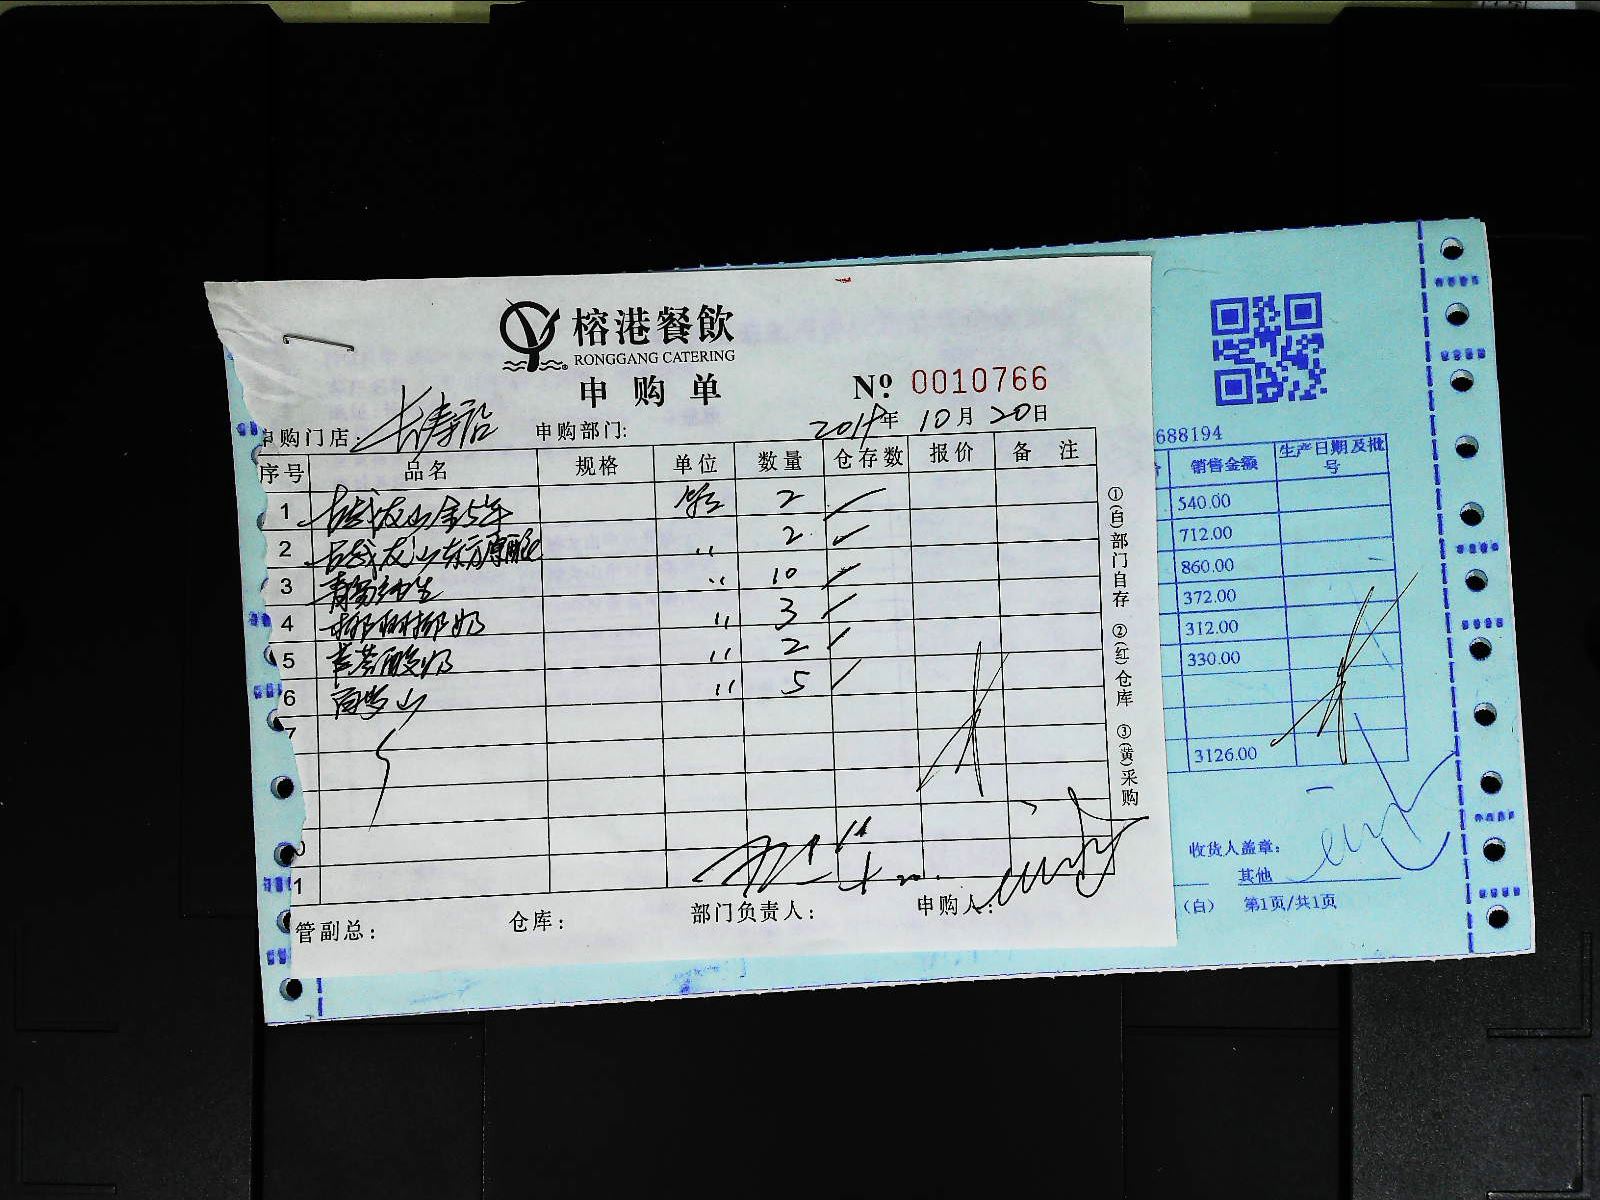 榕港餐飲
RONGGANG CATERING
申购单
№ 0010766
申购门店: 长寿路
申购部门:
2019年 10月 20日
序号 品名 规格 单位 数量 仓存数 报价 备注
1 古越龙山金5年 2 ✓
2 古越龙山东方原酿 〃 2 ✓
3 青岛纯生 〃 10 ✓
4 椰树椰奶 〃 3 ✓
5 酸奶 〃 2 ✓
6 〃 5 ✓
7
1
管副总:
仓库:
部门负责人:
申购人:
①(白)部门自存 ②(红)仓库 ③(黄)采购
688194
销售金额 生产日期及批号
540.00
712.00
860.00
372.00
312.00
330.00
3126.00
收货人盖章:
其他
(白) 第1页/共1页